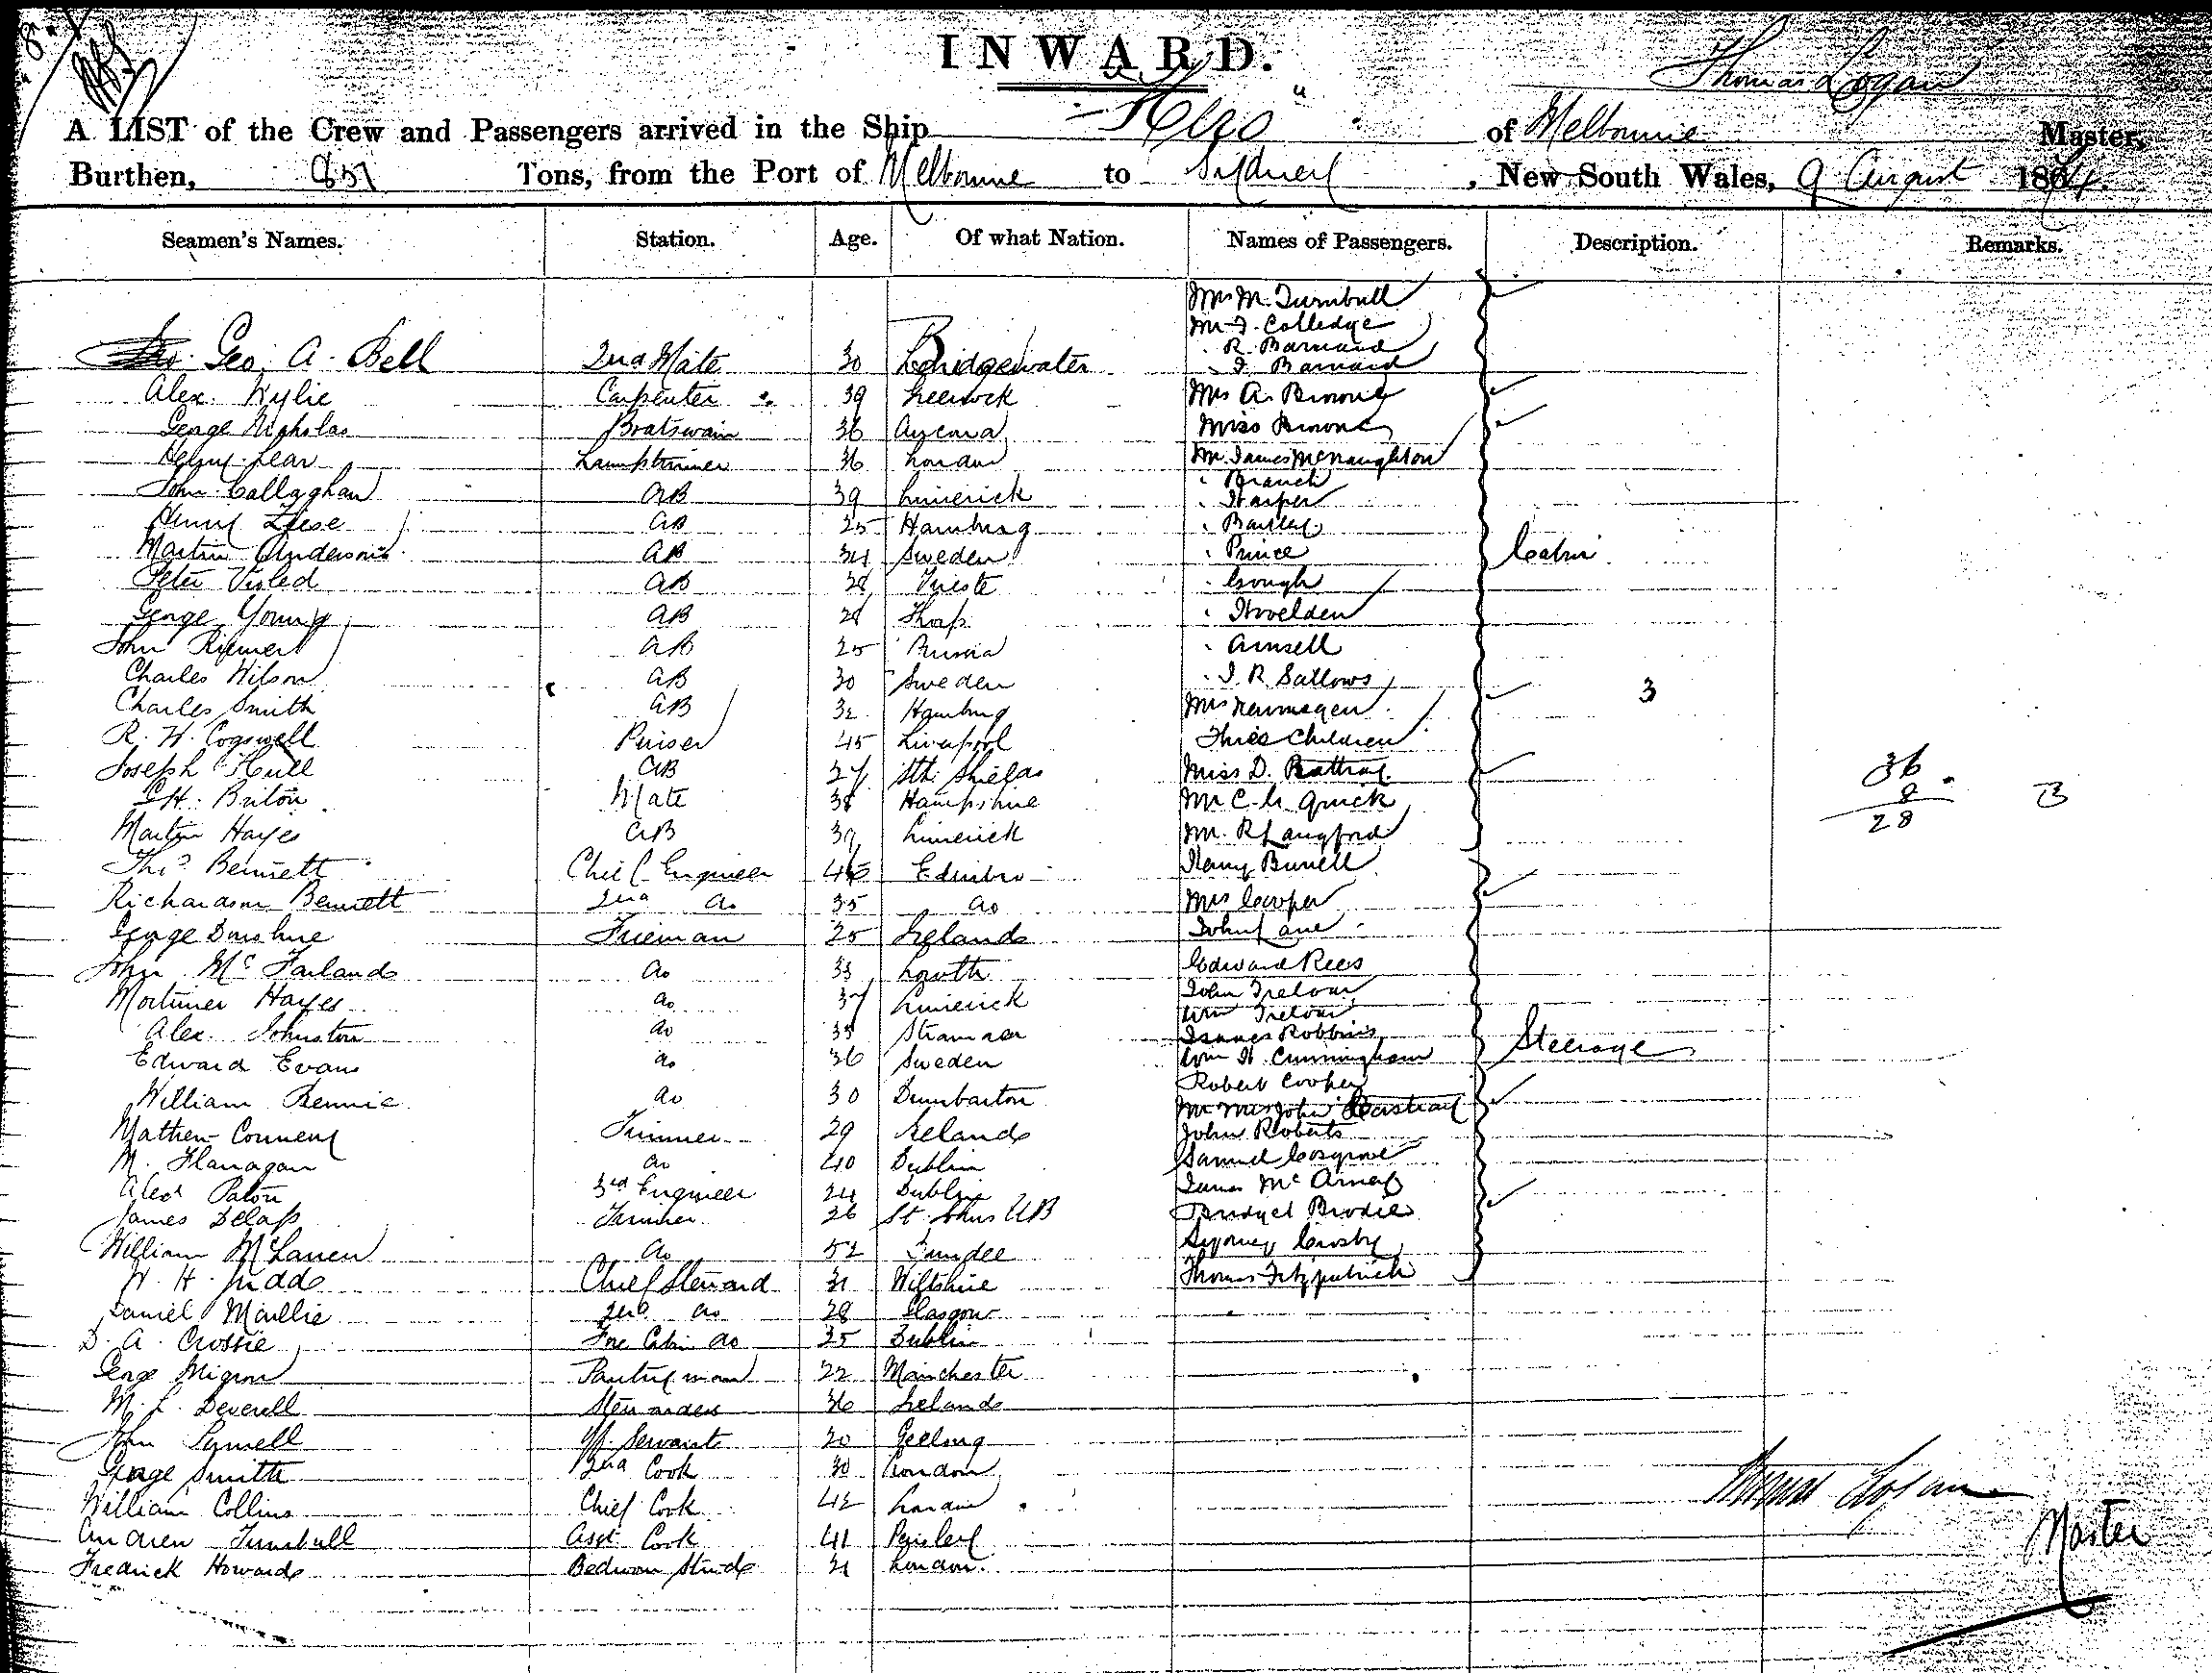 INWARD.
Thomas Logan
A LIST of the Crew and Passengers arrived in the Ship of Melbourne Master,
Burthen, Tons, from the Port of Melbourne to Sydney, New South Wales, 9 August
Seamen's Names. Station. Age. Of what Nation. Names of Passengers. Description. Remarks.
Mrs M. Turnbull
Mr J. Colledge
" R. Barnard
Geo. A. Bell 2nd Mate 30 Bridgewater " J. Barnard
Alex. Wylie Carpenter 39 Greenock Mrs A.
George Nicholas Boatswain 36 Miss
Henry Lear Lamptrimmer 36 London Mr James McNaughton
" Branch
John Callaghan AB 39 Limerick " Harper
Henry AB 25 Hamburg "
Martin Anderson AB Sweden " Prince Cabin
Peter AB Trieste " Gough
George Young AB "
John AB 25 Russia "
Charles Wilson AB 30 Sweden " J. R. Sallows
Charles Smith AB 32 Hamburg Mrs 3
R. W. Cogswell Purser 45 Liverpool Three Children
Joseph Hull AB Sth Shields Miss D. 36
Briton Mate Hampshire Mr C. Quick 8
28
Martin Hayes AB 39 Limerick Mr. R Langford
Thos Bennett Chief Engineer Edinbro
Richardson Bennett 2nd do 35 do Mrs Cooper
George Fireman 25 Ireland John Lane
John McFarland do 33 Louth Edward Rees
Mortimer Hayes do 37 Limerick John
Wm
Alex. Johnston do 35 Stranraer Robbins
Edward Evans do 36 Sweden Wm H. Cunningham Steerage
Robert Cooper
William Rennie do 30 Dumbarton Mr Mrs John
Mathew Trimmer 29 Ireland John Roberts
M. Flanagan do 40 Dublin Samuel Cosgrove
Alexr Paton 3rd Engineer 24 Dublin
James Trimmer 26 St. Johns Bridget Brodie
William McLaren do 52 Dundee Sydney Crosby
W. H. Judd Chief Steward 31 Wiltshire Thomas Fitzpatrick
Daniel Maillie 2nd do 28 Glasgow
D. A. Crossie Fore Cabin do 25 Dublin
George Mignon Pantryman 22 Manchester
M. L. Deverell Stewardess 36 Ireland
John Servant 20 Geelong
George Smith 2nd Cook 30 London
William Collins Chief Cook 42 London
Andrew Turnbull Asst Cook 41 Paisley
Fredrick Howard Bedroom 21 London
Thomas Logan
Master